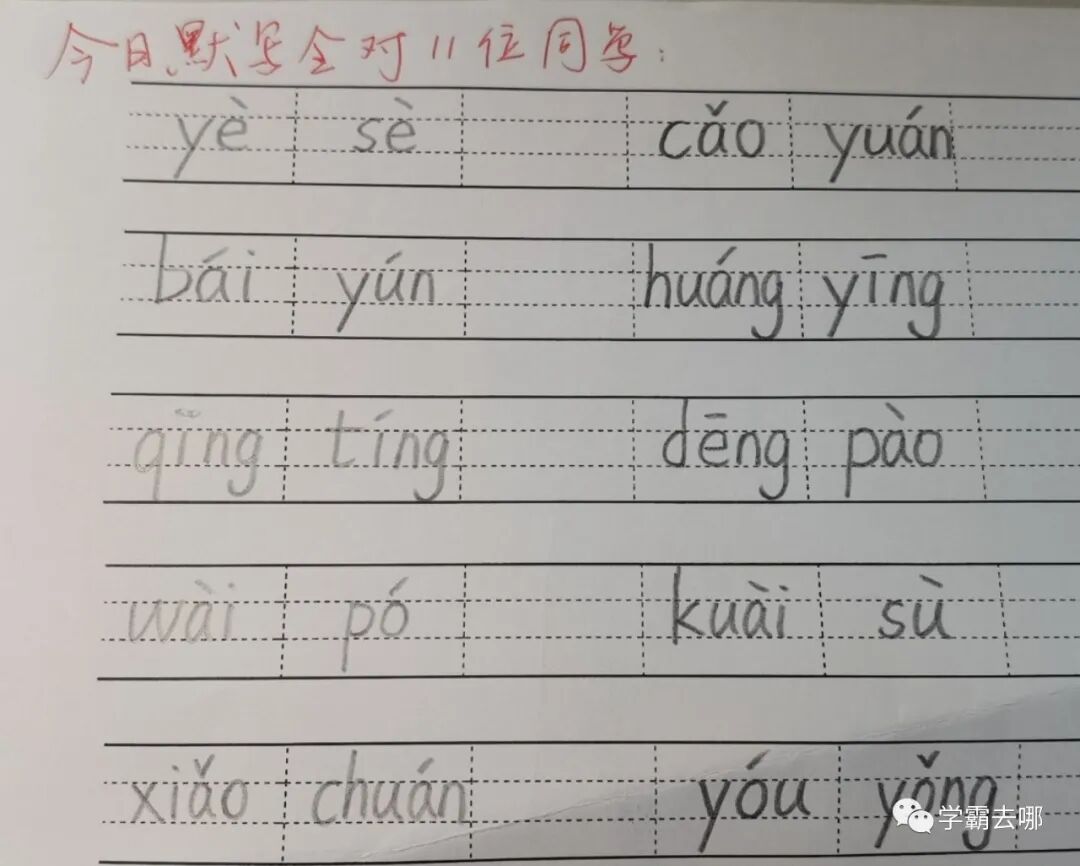 今日默写全对11位同学:
yè sè cǎo yuán
bái yún huáng yīng
qīng tíng dēng pào
wài pó kuài sù
xiǎo chuán yóu yǒng
学霸去哪